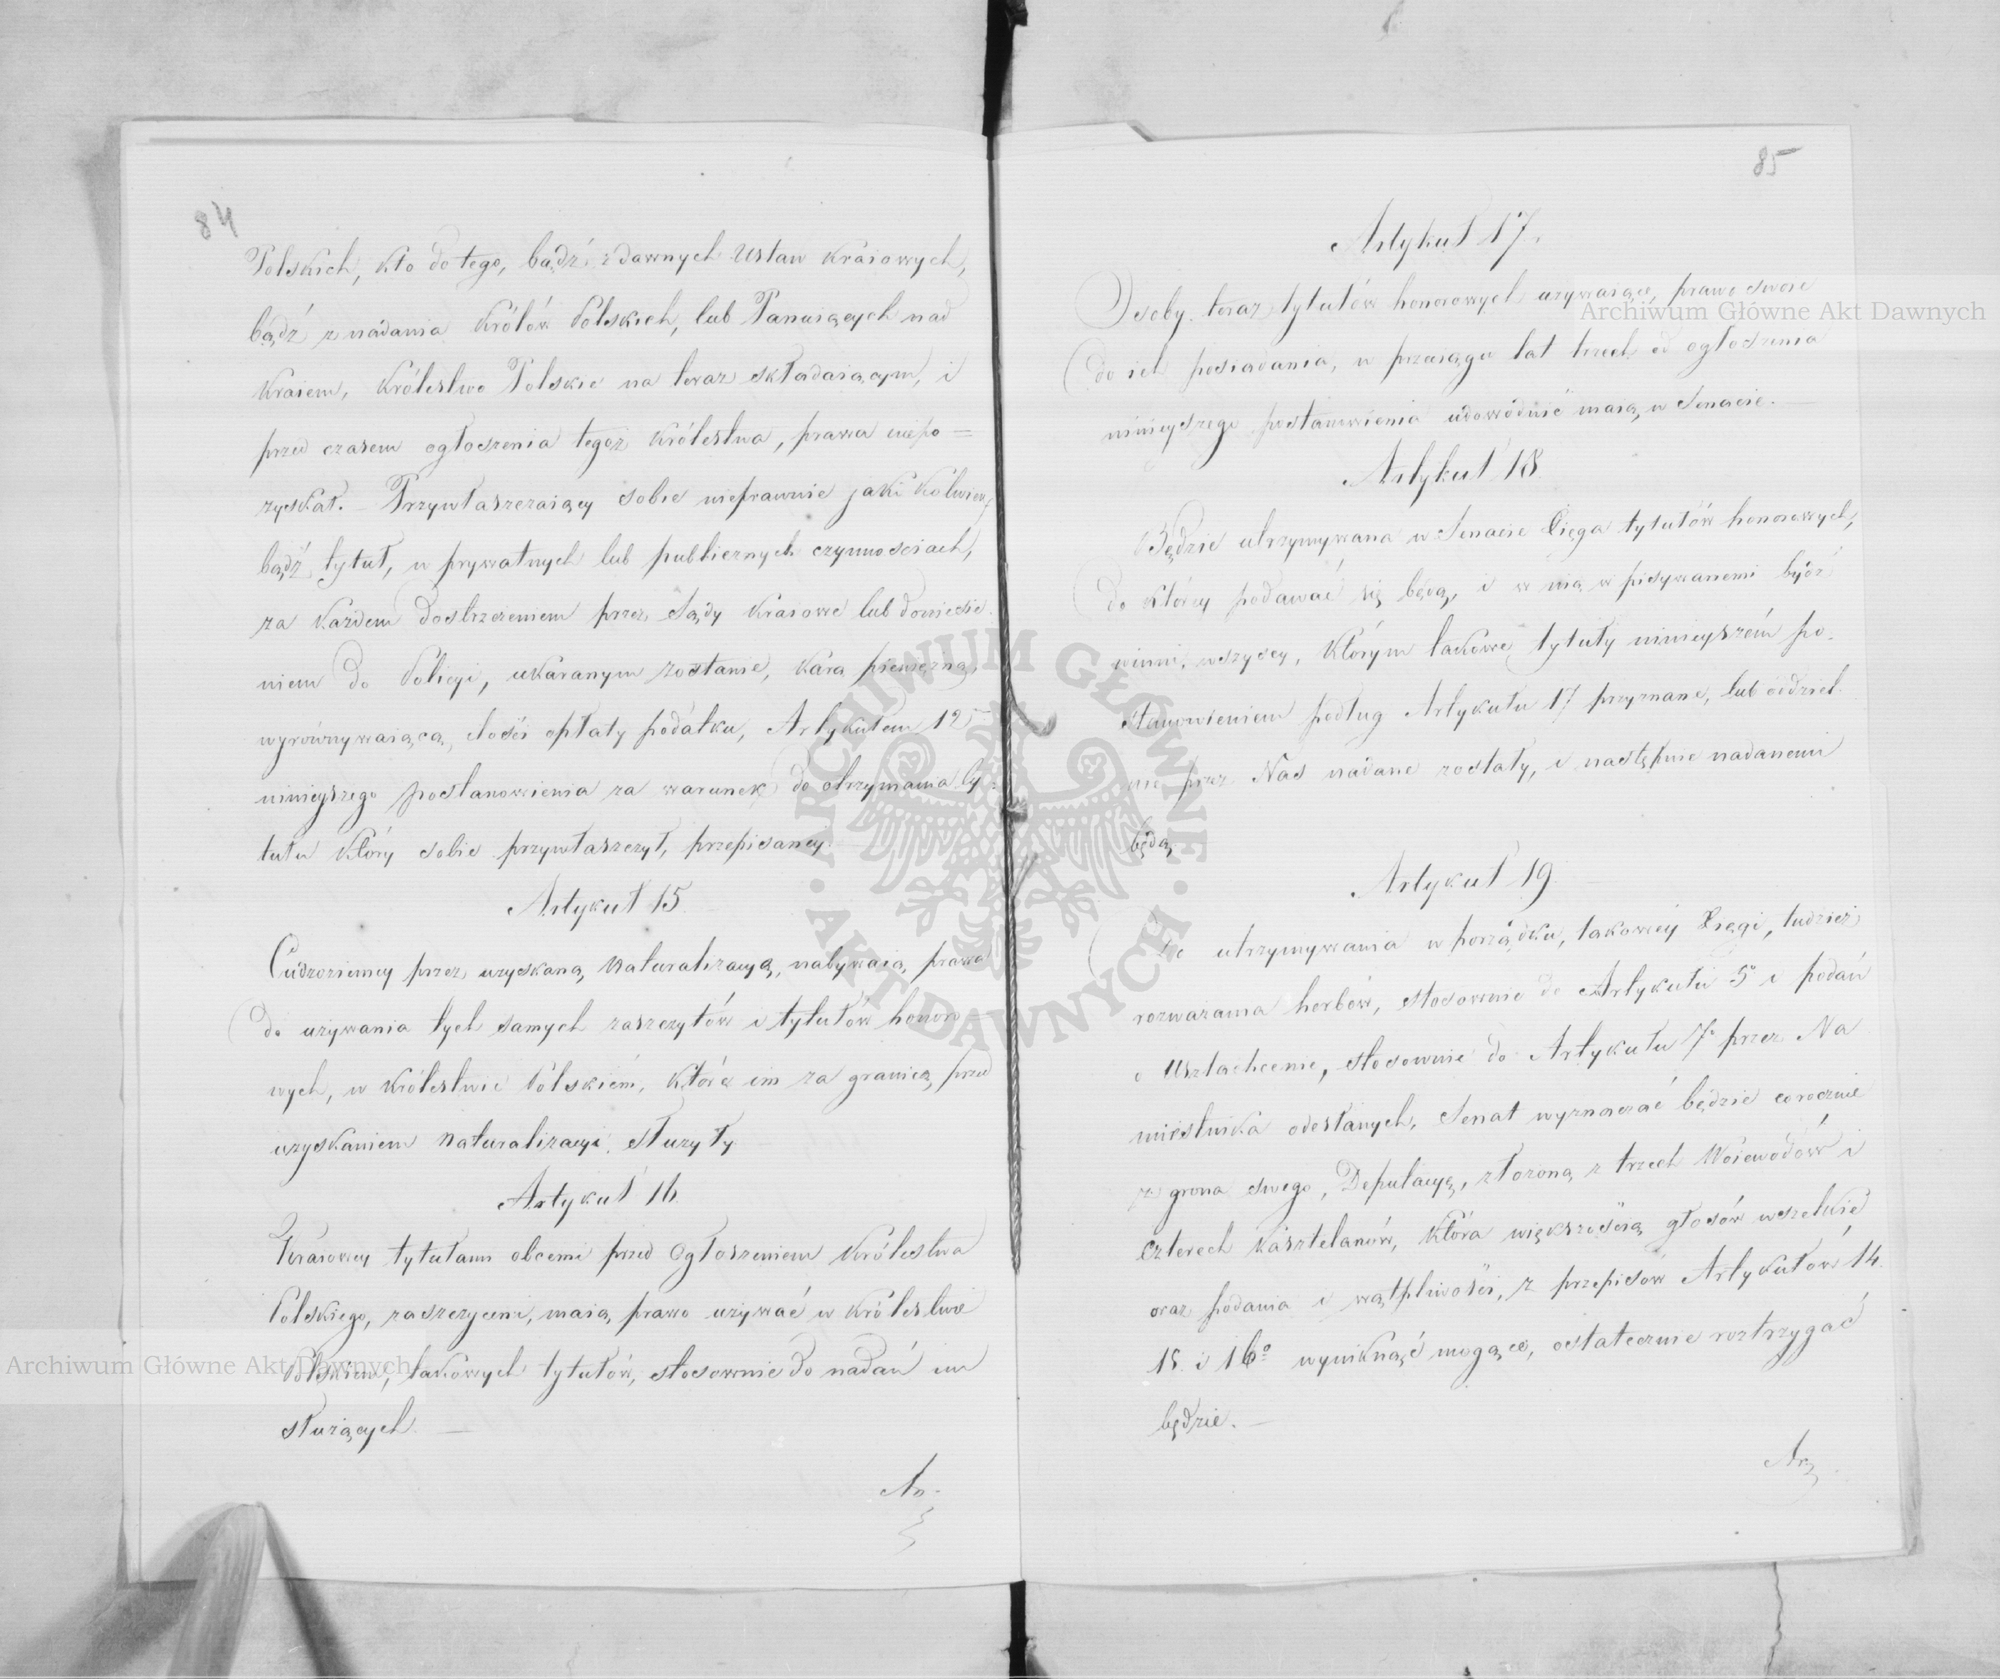 84
Polskich, kto do tego, bądź z dawnych Ustaw kraiowych,
bądź z nadania Królów Polskich, lub Panuiących nad
kraiem, Królestwo Polskie na teraz składaiącym, i
przed czasem ogłoszenia tegoż Królestwa, prawa niepo=
zyskał. – Przywłaszczaiący sobie nieprawnie jaki kolwiek
bądź tytuł, w prywatnych lub publicznych czynnościach,
za każdem dostrzeżeniem przez Sądy Kraiowe lub doniesie
niem do Policyi, ukaranym zostanie, karą pieniężną,
wyrównywaiącą ilości opłaty podatku, Artykułem 12
ninieyszego postanowienia za warunek do otrzymania ty=
tułu który sobie przywłaszczył, przepisaney.
Artykuł 15
Cudzoziemcy przez uzyskaną Naturalizacyą, nabywaią prawa
do używania tych samych zaszczytów i tytułów honoro
wych, w Królestwie Polskiém, które im za granicą, przed
uzyskaniem Naturalizacyi, służyły
Artykuł 16
Kraiowcy tytułami obcemi przed Ogłoszeniem Królestwa
Polskiego, zaszczyceni, maią prawo używać w Królestwie
Polskiem, takowych tytułów, stosownie do nadań im
służących. —
Ar-
85
Artykuł 17.
Osoby teraz tytułów honorowych używaiące, prawo swoie
do ich posiadania, w przeciągu lat trzech od ogłoszenia
ninieyszego postanowienia udowodnić maią w Senacie. —
Artykuł 18
Będzie utrzymywana w Senacie Xięga tytułów honorowych,
do którey podawać się będą, i w nią wpisywanemi bydź
winni, wszyscy, którym takowe tytuły ninieyszém po-
stanowieniem podług Artykułu 17 przyznane, lub oddziel-
nie przez Nas nadane zostały, i następnie nadanemi
będą
Artykuł 19
Do utrzymywania w porządku, takowéy Xięgi, tudzież
rozważania herbów, stosownie do Artykułu 5° i podań
o Uszlachcenie, stosownie do Artykułu 7° przez Na
miestnika odesłanych, Senat wyznaczać będzie corocznie
z grona swego, Deputacyą, złożoną z trzech Woiewodów i
czterech Kasztelanów, która większością głosów wszelkie
oraz podania i wątpliwości, z przepisów Artykułów 14.
15. i 16° wyniknąć mogące, ostatecznie roztrzygać
będzie. —
Ar
Archiwum Główne Akt Dawnych
Archiwum Główne Akt Dawnych
ARCHIWUM GŁÓWNE AKT DAWNYCH